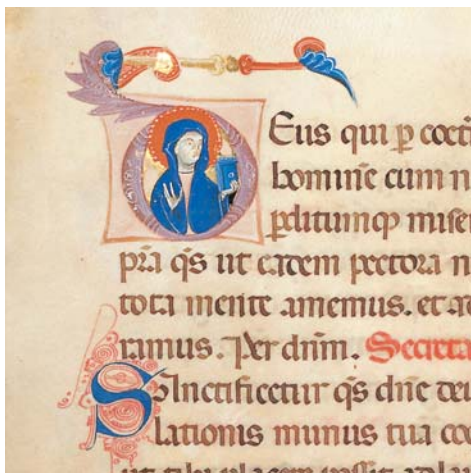 DEus qui ꝑ coet
homine cum n
ꝑditumqꝫ mise
p̃ra q̃s ut eadem pectora n
tota mente amemus. et ad
ramus. Per dn̄m. Secreta
SAnctificetur q̃s dn̄e
lationis munus tua coo
ut tibi